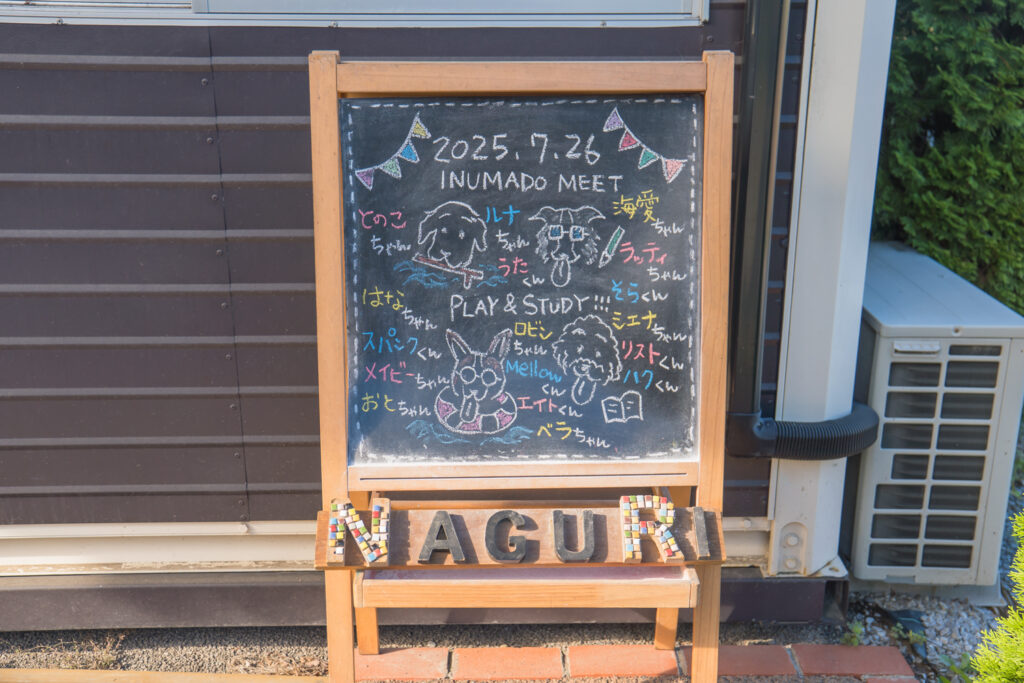 2025.7.26
INUMADO MEET
とのこちゃん
ルナちゃん
海愛ちゃん
うたくん
ラッティちゃん
PLAY & STUDY!!!
そらくん
はなちゃん
ロビンちゃん
ミエナちゃん
スパンクくん
Mellowくん
リストくん
メイビーちゃん
ハクくん
おとちゃん
エイトくん
ベラちゃん
NAGURI